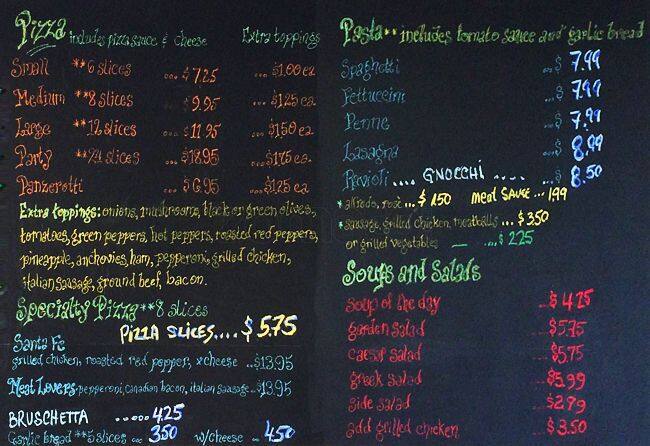 Pizza includes pizza sauce & cheese Extra toppings
Small **6 slices ... $7.25 ...$1.00 ea
Medium **8 slices ... 9.95 ...$1.25 ea
Large **12 slices ...$11.95 ...$1.50 ea
Party **24 slices ...$18.95 ...$1.75 ea.
Panzerotti ... $6.95 ...$1.25 ea
Extra toppings: onions, mushrooms, black or green olives,
tomatoes, green peppers, hot peppers, roasted red peppers,
pineapple, anchovies, ham, pepperoni, grilled chicken,
italian sausage, ground beef, bacon.
Specialty Pizza **8 slices
PIZZA SLICES.... $5.75
Santa Fe
grilled chicken, roasted red pepper, xcheese ...$13.95
Meat Lovers pepperoni, canadian bacon, italian sausage ...$13.95
BRUSCHETTA ...... 4.25
Garlic bread **5 slices ... 3.50 w/cheese .. 4.50
Pasta ** includes tomato sauce and garlic bread
Spaghetti ...$ 7.99
Fettuccini ...$ 7.99
Penne ...$ 7.99
Lasagna ...$ 8.99
Ravioli .... GNOCCHI .... $ 8.50
*alfredo, rosé ...$ 1.50 meat SAUCE ... 1.99
*sausage, grilled chicken, meatballs ...$3.50
or grilled vegetables ...$ 2.25
Soups and Salads
soup of the day ...$ 4.25
garden salad ...$5.75
caesar salad ...$5.75
greek salad ...$5.99
side salad ...$2.79
add grilled chicken ...$3.50